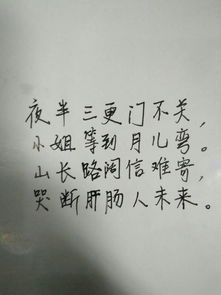 夜半三更门不关，
小姐等到月儿弯。
山长路阔信难寄，
哭断肝肠人未来。